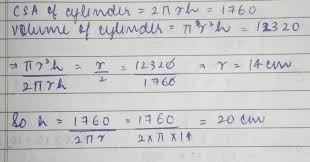 CSA of cylinder = 2πrh = 1760
Volume of cylinder = πr²h = 12320
⇒ πr²h / 2πrh = r / 2 = 12320 / 1760 ⇒ r = 14 cm
So h = 1760 / 2πr = 1760 / 2×π×14 = 20 cm